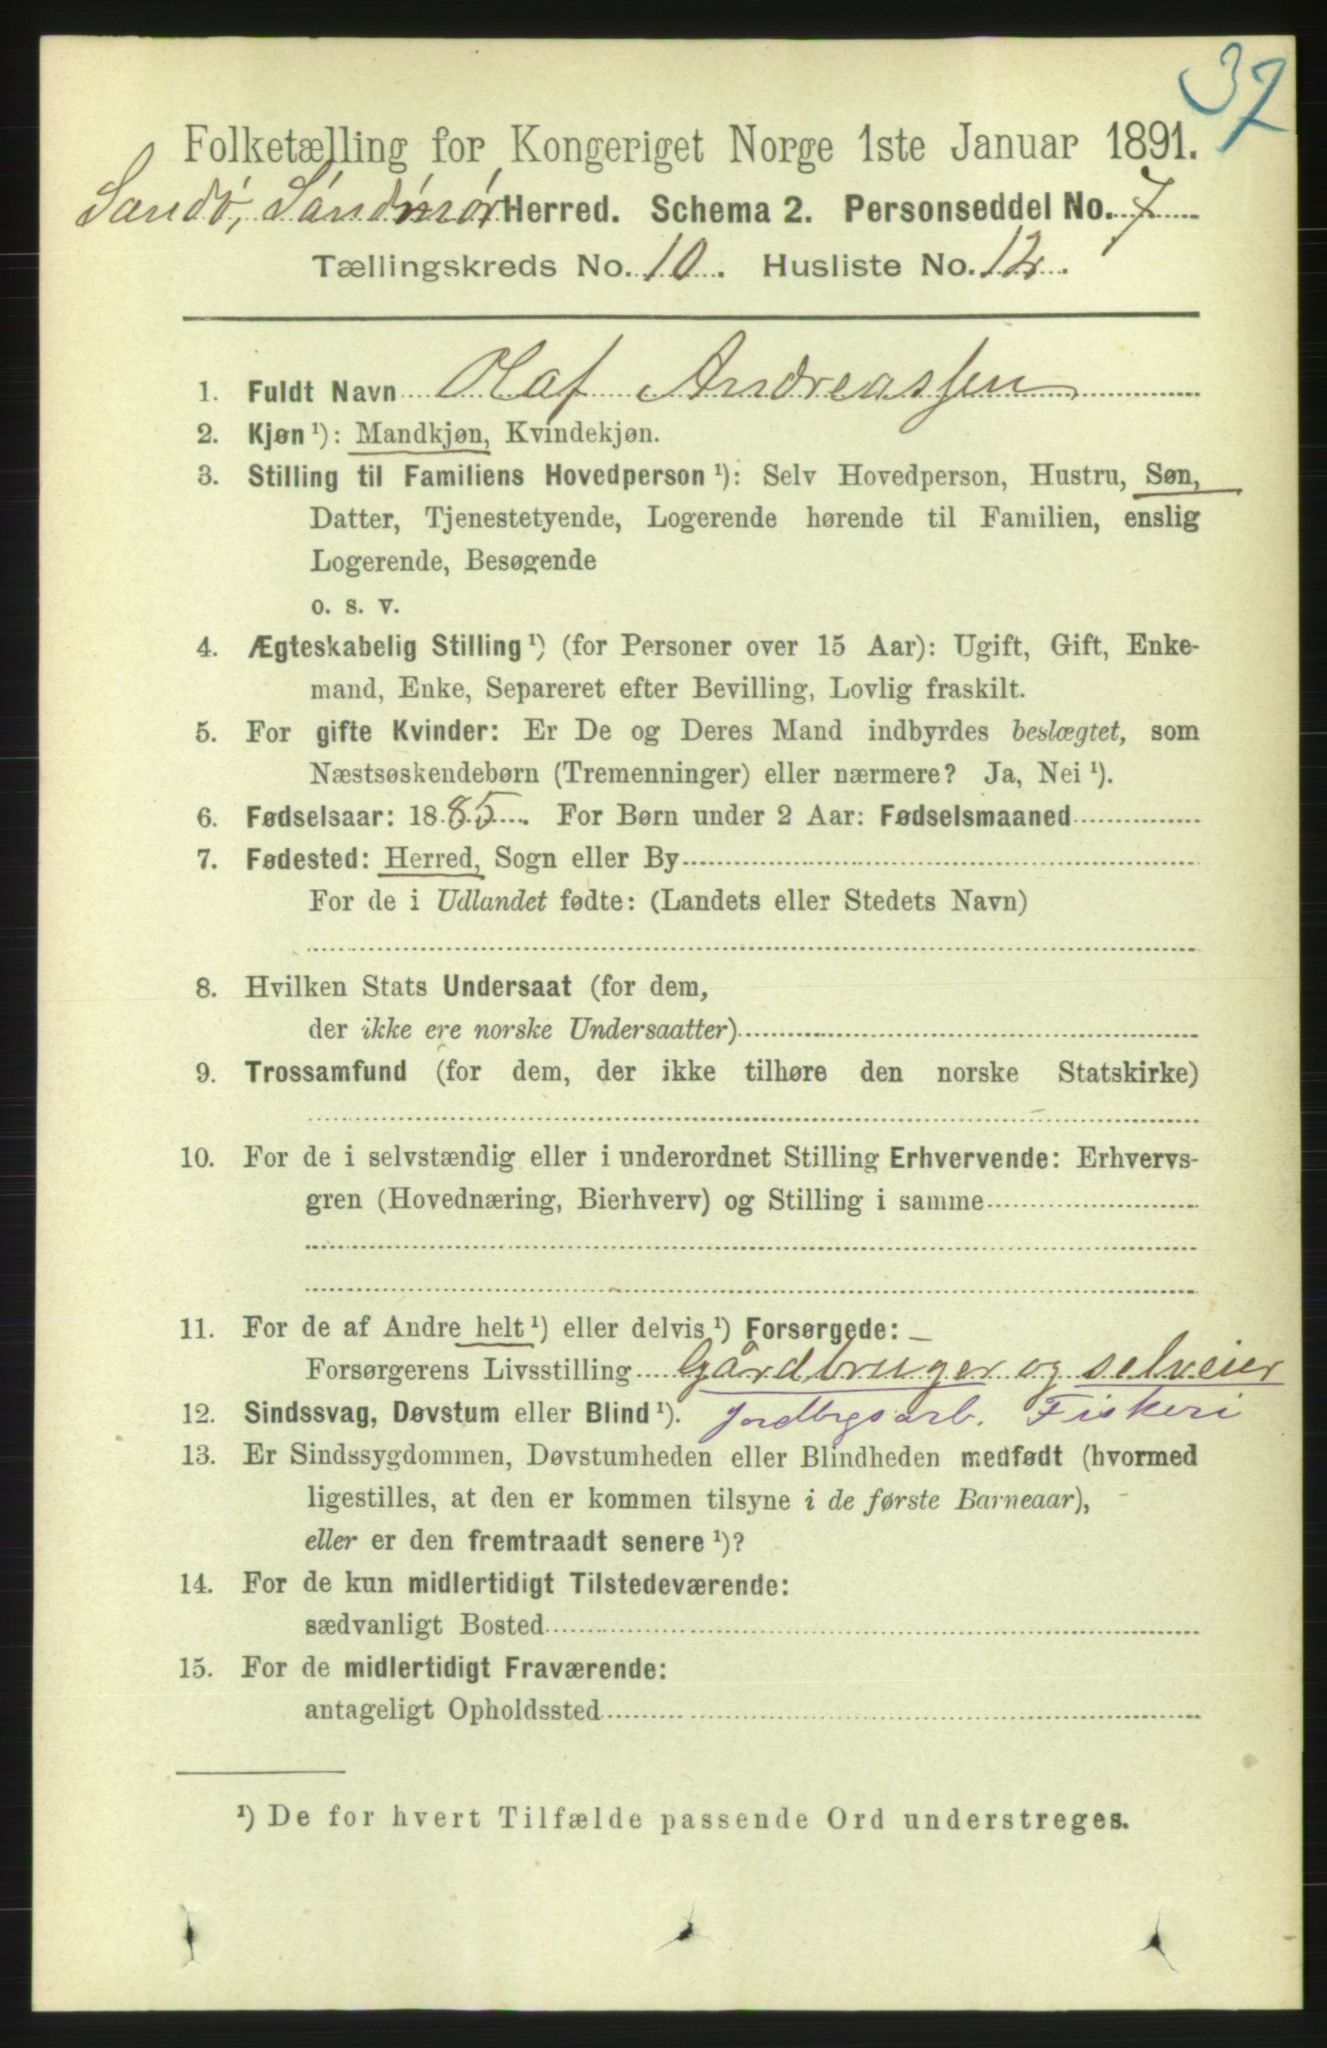 37
Folketælling for Kongeriget Norge 1ste Januar 1891.
Sandö, Söndmör Herred. Schema 2. Personseddel No. 7
Tællingskreds No. 10. Husliste No. 12.
1. Fuldt Navn Olaf Andreassen
2. Kjøn ¹): Mandkjøn, Kvindekjøn.
3. Stilling til Familiens Hovedperson ¹): Selv Hovedperson, Hustru, Søn,
Datter, Tjenestetyende, Logerende hørende til Familien, enslig
Logerende, Besøgende
o. s. v.
4. Ægteskabelig Stilling ¹) (for Personer over 15 Aar): Ugift, Gift, Enke-
mand, Enke, Separeret efter Bevilling, Lovlig fraskilt.
5. For gifte Kvinder: Er De og Deres Mand indbyrdes beslægtet, som
Næstsøskendebørn (Tremenninger) eller nærmere? Ja, Nei ¹).
6. Fødselsaar: 1885. For Børn under 2 Aar: Fødselsmaaned
7. Fødested: Herred, Sogn eller By
For de i Udlandet fødte: (Landets eller Stedets Navn)
8. Hvilken Stats Undersaat (for dem,
der ikke ere norske Undersaatter)
9. Trossamfund (for dem, der ikke tilhøre den norske Statskirke)
10. For de i selvstændig eller i underordnet Stilling Erhvervende: Erhvervs-
gren (Hovednæring, Bierhverv) og Stilling i samme
11. For de af Andre helt ¹) eller delvis ¹) Forsørgede:
Forsørgerens Livsstilling Gårdbruger og selveier
12. Sindssvag, Døvstum eller Blind ¹). Jordbgsarb. Fiskeri
13. Er Sindssygdommen, Døvstumheden eller Blindheden medfødt (hvormed
ligestilles, at den er kommen tilsyne i de første Barneaar),
eller er den fremtraadt senere ¹)?
14. For de kun midlertidigt Tilstedeværende:
sædvanligt Bosted
15. For de midlertidigt Fraværende:
antageligt Opholdssted
¹) De for hvert Tilfælde passende Ord understreges.